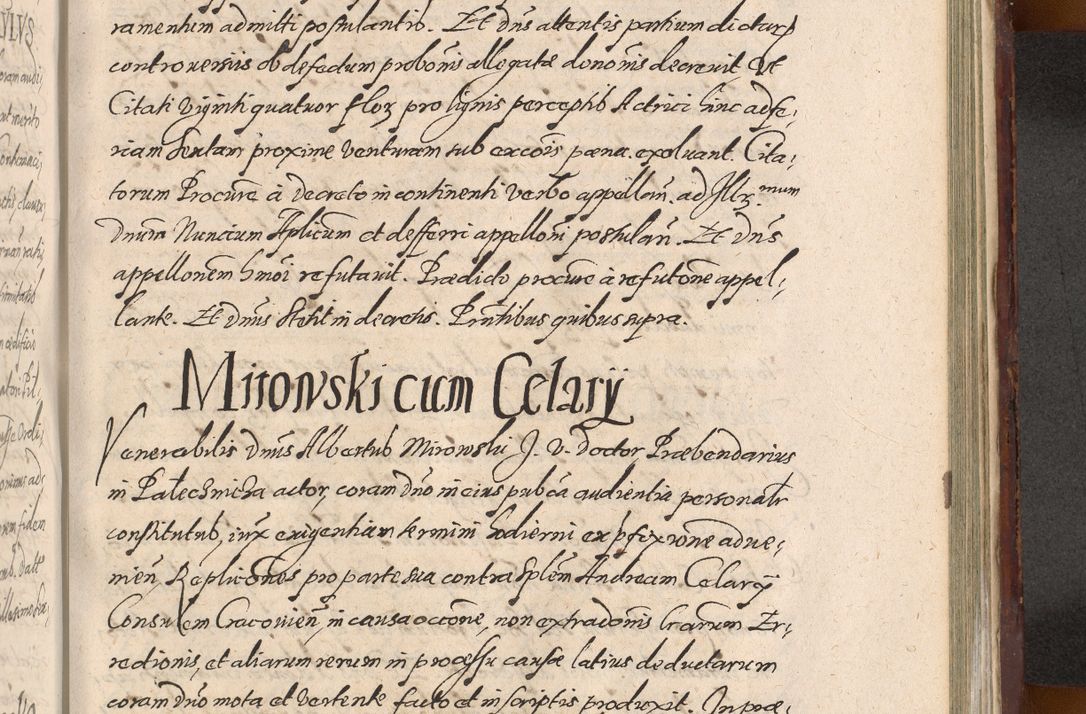 ramentum admitti postulantis. Et dns attentis partium dictarum
controversiis ob defectum probonis allegatæ dononis decrevit Ut
Citati Viginti quatuor flor pro lignis perceptis Actrici hinc ad fe-
riam sextam proxime venturam sub excois pæna exolvant. Cita-
torum Procurr à decreto in continenti verbo appellavit ad Illr.mum
Dnum Nuncium Aplicum et defferri appelloni postulavit. Et Dns
appellonem hmoi refutavit. Prædicto procurr à refutone appel-
lante. Et dnus stetit in decretis. Pntibus quibus supra.
Mirowski cum Celary
Venerabilis Dnus Albertus Mirowski J. V. Doctor Præbendarius
in Palechnicha actor, coram dno in eius pubca audientia personalr
constitutus, iux exigentiam termini hodierni ex pfixione adve-
nien Replicones pro parte sua contra Splem Andream Celary
Consulem Cracovien, in causa occone, non extradonis lrarum Er-
rectionis, et aliarum rerum in processu causæ latius deductarum
coram dno mota et vertente facto et in scriptis produxit. In præ-